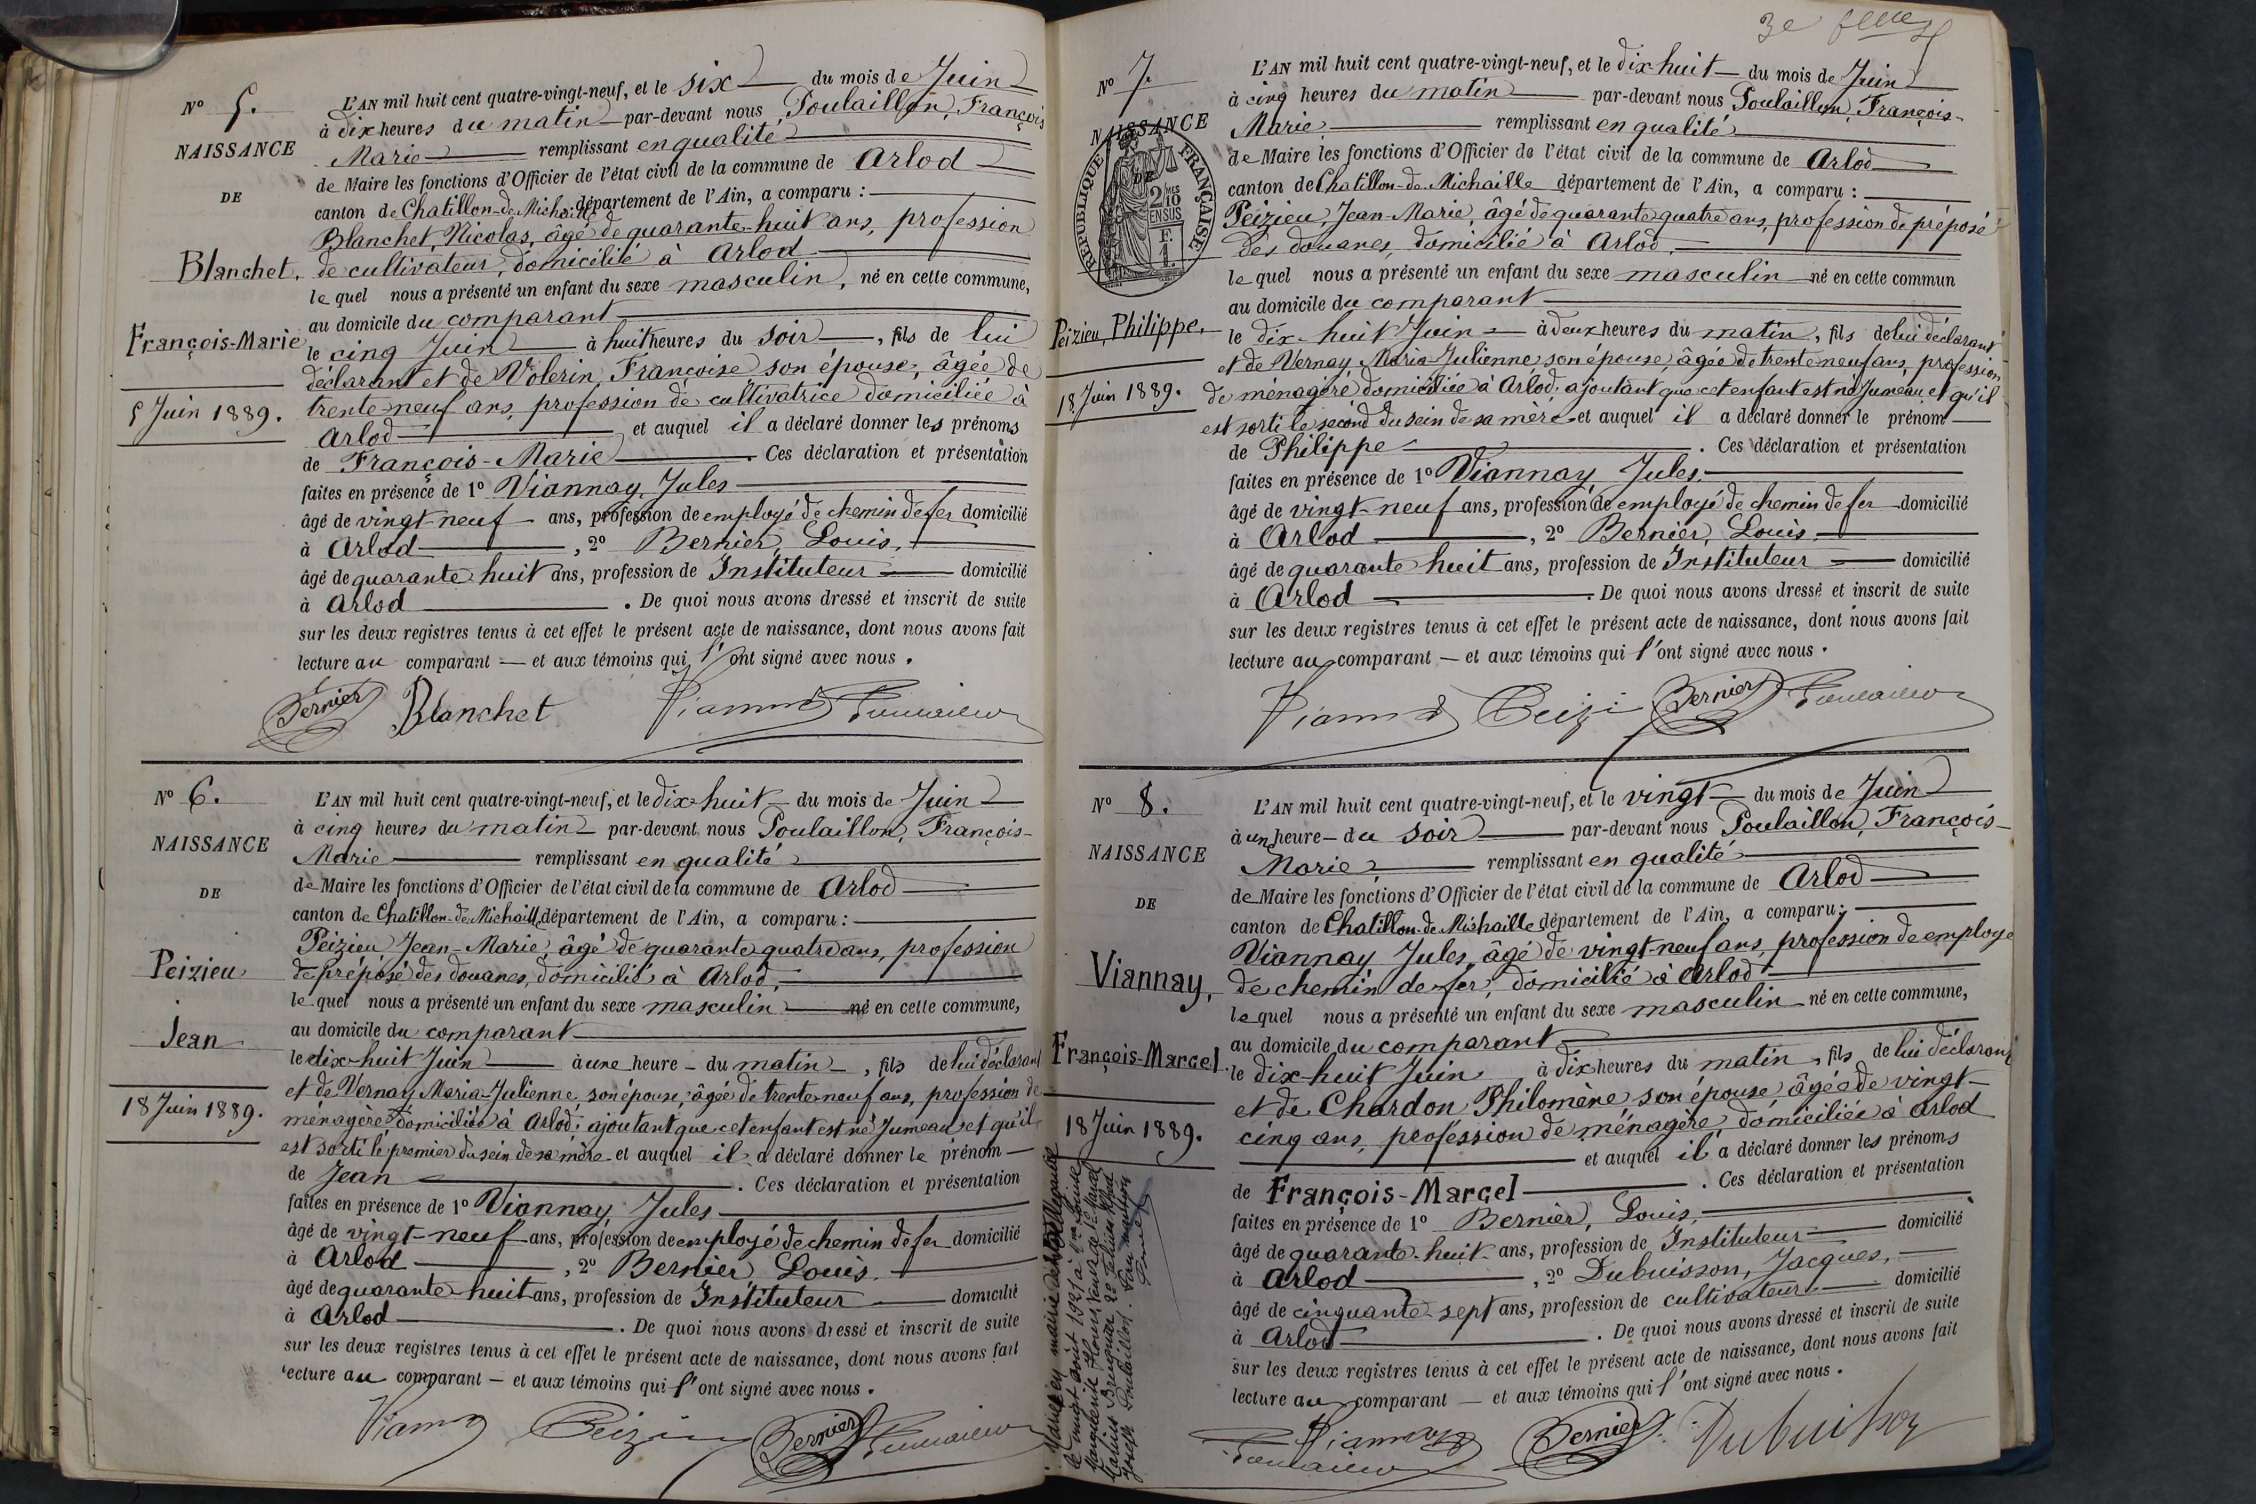 N° 5.
NAISSANCE
DE
Blanchet,
François-Marie
5 Juin 1889.
L'AN mil huit cent quatre-vingt-neuf, et le six du mois de Juin
à dix heures du matin par-devant nous Poulaillon, François
Marie remplissant en qualité
de Maire les fonctions d'Officier de l'état civil de la commune de Arlod
canton de Chatillon-de-Michaille département de l'Ain, a comparu :
Blanchet, Nicolas, âgé de quarante-huit ans, profession
de cultivateur, domicilié à Arlod
lequel nous a présenté un enfant du sexe masculin, né en cette commune,
au domicile du comparant
le cinq Juin à huit heures du soir, fils de lui
déclarant et de Volerin, Françoise son épouse, âgée de
trente neuf ans, profession de cultivatrice domiciliée à
Arlod et auquel il a déclaré donner les prénoms
de François-Marie. Ces déclaration et présentation
faites en présence de 1° Viannay, Jules
âgé de vingt-neuf ans, profession de employé de chemin de fer domicilié
à Arlod, 2° Bernier, Louis,
âgé de quarante huit ans, profession de Instituteur domicilié
à Arlod. De quoi nous avons dressé et inscrit de suite
sur les deux registres tenus à cet effet le présent acte de naissance, dont nous avons fait
lecture au comparant — et aux témoins qui l'ont signé avec nous.
Bernier Blanchet Viannay Poulaillon
N° 6.
NAISSANCE
DE
Peizieu
Jean
18 Juin 1889.
L'AN mil huit cent quatre-vingt-neuf, et le dix-huit du mois de Juin
à cinq heures du matin par-devant nous Poulaillon, François-
Marie remplissant en qualité
de Maire les fonctions d'Officier de l'état civil de la commune de Arlod
canton de Chatillon-de-Michaille département de l'Ain, a comparu :
Peizieu, Jean-Marie, âgé de quarante quatre ans, profession
de préposé des douanes, domicilié à Arlod,
lequel nous a présenté un enfant du sexe masculin né en cette commune,
au domicile du comparant
le dix-huit Juin à une heure du matin, fils de lui déclarant
et de Vernay Maria-Julienne, son épouse, âgée de trente neuf ans, profession de
ménagère domiciliée à Arlod; ajoutant que cet enfant est né Jumeau et qu'il
est sorti le premier du sein de sa mère et auquel il a déclaré donner le prénom
de Jean. Ces déclaration et présentation
faites en présence de 1° Viannay Jules
âgé de vingt-neuf ans, profession de employé de chemin de fer domicilié
à Arlod, 2° Bernier Louis.
âgé de quarante-huit ans, profession de Instituteur domicilié
à Arlod. De quoi nous avons dressé et inscrit de suite
sur les deux registres tenus à cet effet le présent acte de naissance, dont nous avons fait
lecture au comparant — et aux témoins qui l'ont signé avec nous.
Viannay Peizieu Bernier Poulaillon
3e
N° 7.
NAISSANCE
DE
RÉPUBLIQUE FRANÇAISE
2/10
EN SUS
F.
1.
Peizieu, Philippe,
18 Juin 1889.
L'AN mil huit cent quatre-vingt-neuf, et le dix-huit du mois de Juin
à cinq heures du matin par-devant nous Poulaillon, François-
Marie, remplissant en qualité
de Maire les fonctions d'Officier de l'état civil de la commune de Arlod
canton de Chatillon-de-Michaille département de l'Ain, a comparu :
Peizieu, Jean-Marie, âgé de quarante quatre ans, profession de préposé
des douanes, domicilié à Arlod.
lequel nous a présenté un enfant du sexe masculin né en cette commun
au domicile du comparant
le dix-huit Juin à deux heures du matin, fils de lui déclarant
et de Vernay, Maria-Julienne, son épouse, âgée de trente neuf ans, profession
de ménagère domiciliée à Arlod, ajoutant que cet enfant est né Jumeau et qu'il
est sorti le second du sein de sa mère et auquel il a déclaré donner le prénom
de Philippe. Ces déclaration et présentation
faites en présence de 1° Viannay Jules.
âgé de vingt-neuf ans, profession de employé de chemin de fer domicilié
à Arlod, 2° Bernier, Louis,
âgé de quarante huit ans, profession de Instituteur domicilié
à Arlod. De quoi nous avons dressé et inscrit de suite
sur les deux registres tenus à cet effet le présent acte de naissance, dont nous avons fait
lecture au comparant — et aux témoins qui l'ont signé avec nous.
Viannay Peizieu Bernier Poulaillon
N° 8.
NAISSANCE
DE
Viannay,
François-Marcel.
18 Juin 1889.
L'AN mil huit cent quatre-vingt-neuf, et le vingt du mois de Juin
à un heure du soir par-devant nous Poulaillon, François-
Marie, remplissant en qualité
de Maire les fonctions d'Officier de l'état civil de la commune de Arlod
canton de Chatillon-de-Michaille département de l'Ain, a comparu :
Viannay Jules, âgé de vingt-neuf ans, profession de employé
de chemin de fer, domicilié à Arlod
lequel nous a présenté un enfant du sexe masculin né en cette commune,
au domicile du comparant
le dix-huit Juin à dix heures du matin, fils de lui déclarant
et de Chardon Philomène son épouse âgée de vingt-
cinq ans, profession de ménagère, domiciliée à Arlod
et auquel il a déclaré donner les prénoms
de François-Marcel. Ces déclaration et présentation
faites en présence de 1° Bernier, Louis,
âgé de quarante-huit ans, profession de Instituteur domicilié
à Arlod, 2° Dubuisson, Jacques,
âgé de cinquante-sept ans, profession de cultivateur domicilié
à Arlod. De quoi nous avons dressé et inscrit de suite
sur les deux registres tenus à cet effet le présent acte de naissance, dont nous avons fait
lecture au comparant — et aux témoins qui l'ont signé avec nous.
Viannay Bernier Dubuisson
Poulaillon
Marié en mairie de
le vingt août 1921 à
Marguerite
Joseph Poulaillon. Pour mention